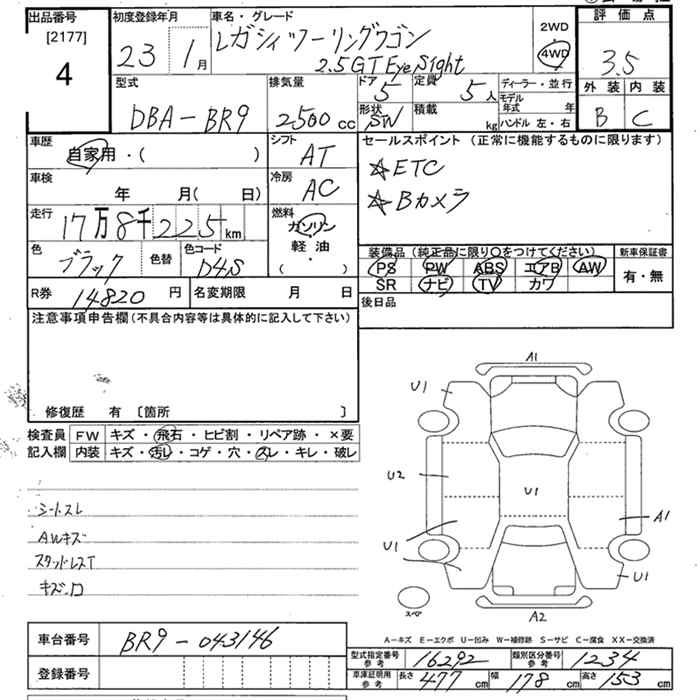 出品番号
[2177]
4
初度登録年月
23 1月
車名・グレード
レガシィツーリングワゴン
2.5GT EyeSight
2WD
4WD
評価点
3.5
外装 内装
B C
型式
DBA-BR9
排気量
2500cc
ドア 5
定員 5人
形状 SW
積載 kg
ディーラー・並行
モデル年式 年
ハンドル 左・右
車歴
自家用・( )
シフト
AT
セールスポイント (正常に機能するものに限ります)
☆ETC
☆Bカメラ
車検
年 月( 日)
冷房
AC
走行
17万8千225km
燃料
ガソリン
軽油・
( )
色
ブラック
色替
色コード
D4S
装備品(純正品に限り〇をつけてください)
新車保証書
PS PW ABS エアB AW
SR ナビ TV カワ
有・無
R券 14820円
名変期限 月 日
後日品
注意事項申告欄(不具合内容等は具体的に記入して下さい)
修復歴 有 〔箇所 〕
検査員
記入欄
FW キズ・飛石・ヒビ割・リペア跡・×要
内装 キズ・汚レ・コゲ・穴・スレ・キレ・破レ
シートスレ
AWキズ
スタッドレスT
キズ・凹
A1
U1
U2
U1
A1
U1
U1
スペア
A2
A-キズ E-エクボ U-凹み W-補修跡 S-サビ C-腐食 XX-交換済
車台番号
BR9-043146
登録番号
型式指定番号
参考
16292
類別区分番号
参考
1234
車庫証明用
参考
長さ 477cm
幅 178cm
高さ 153cm